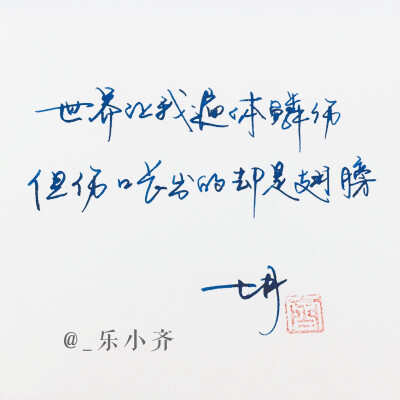 世界让我遍体鳞伤
但伤口长出的却是翅膀
七月
@_乐小齐